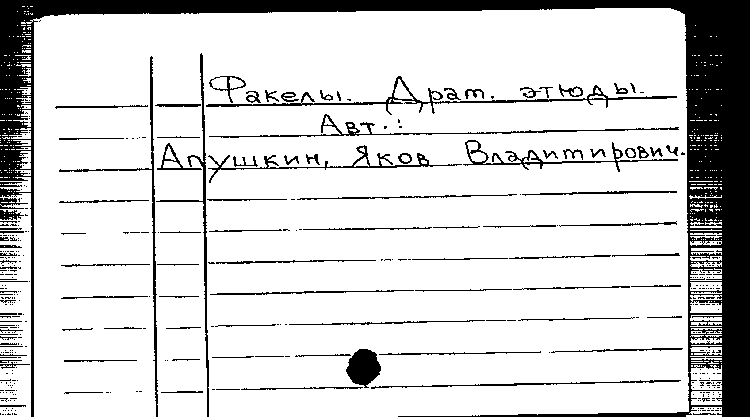 Факелы. Драт. этюды.
Авт.:
Апушкин, Яков Владимирович.